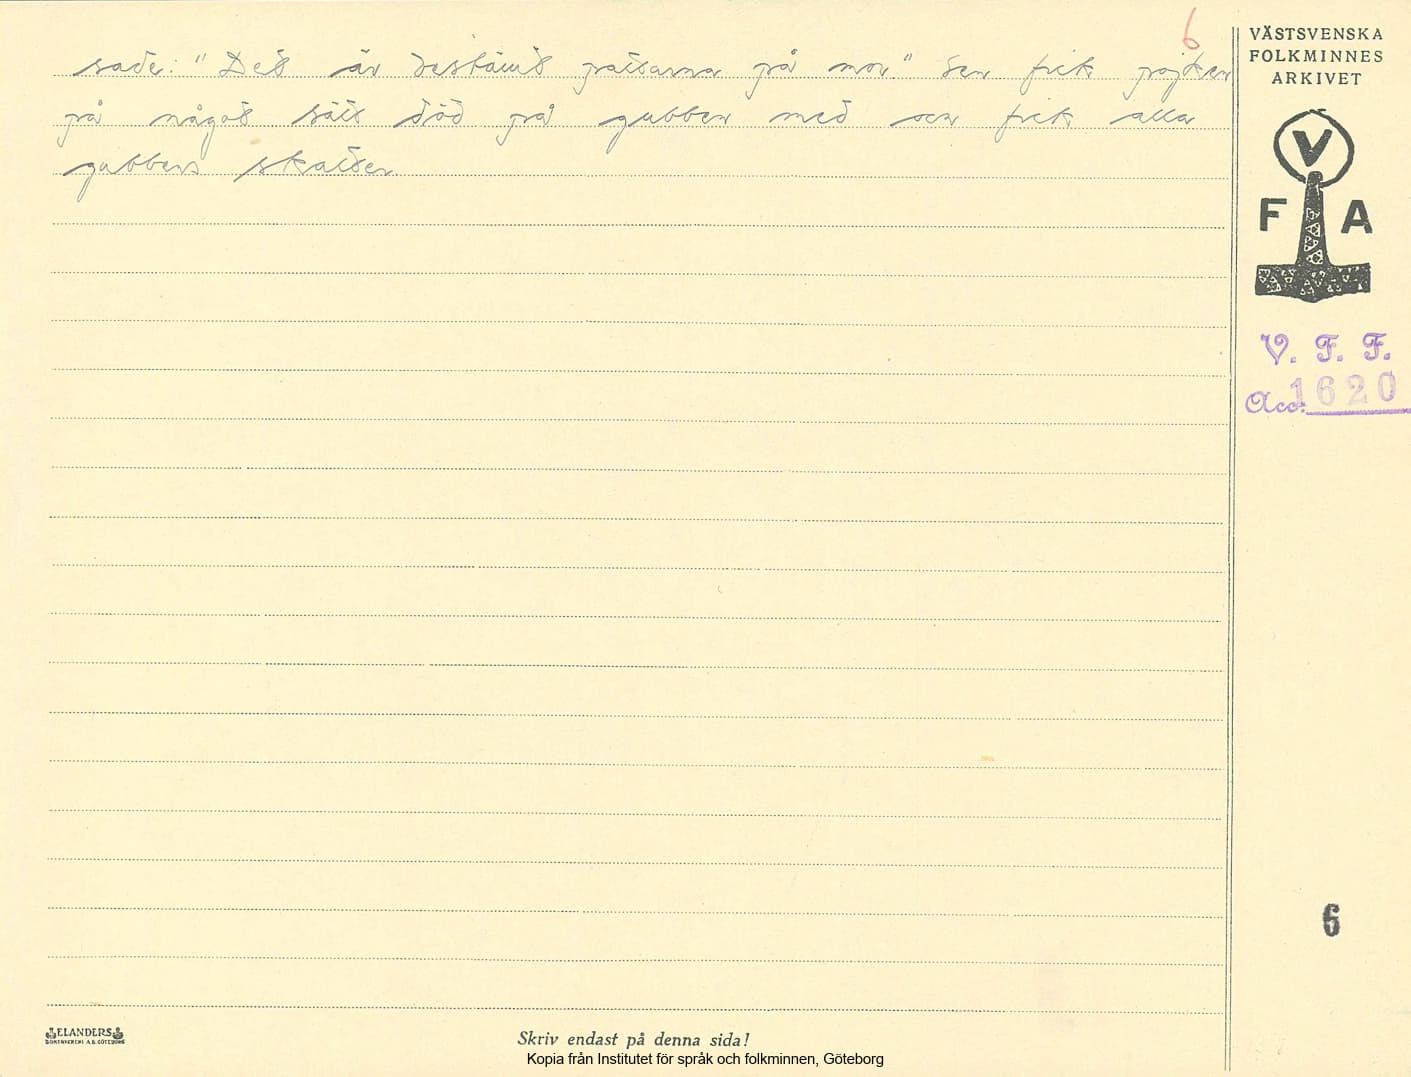 6
sade: "Det är bestämt paltarna på mor" Sen fick pojken
på något sätt död på gubben med och fick alla
gubbens skatter.
VÄSTSVENSKA
FOLKMINNES
ARKIVET
V
F A
V. F. F.
Acc. 1620
6
ELANDERS
BOKTRYCKERI A.B. GÖTEBORG
Skriv endast på denna sida!
Kopia från Institutet för språk och folkminnen, Göteborg